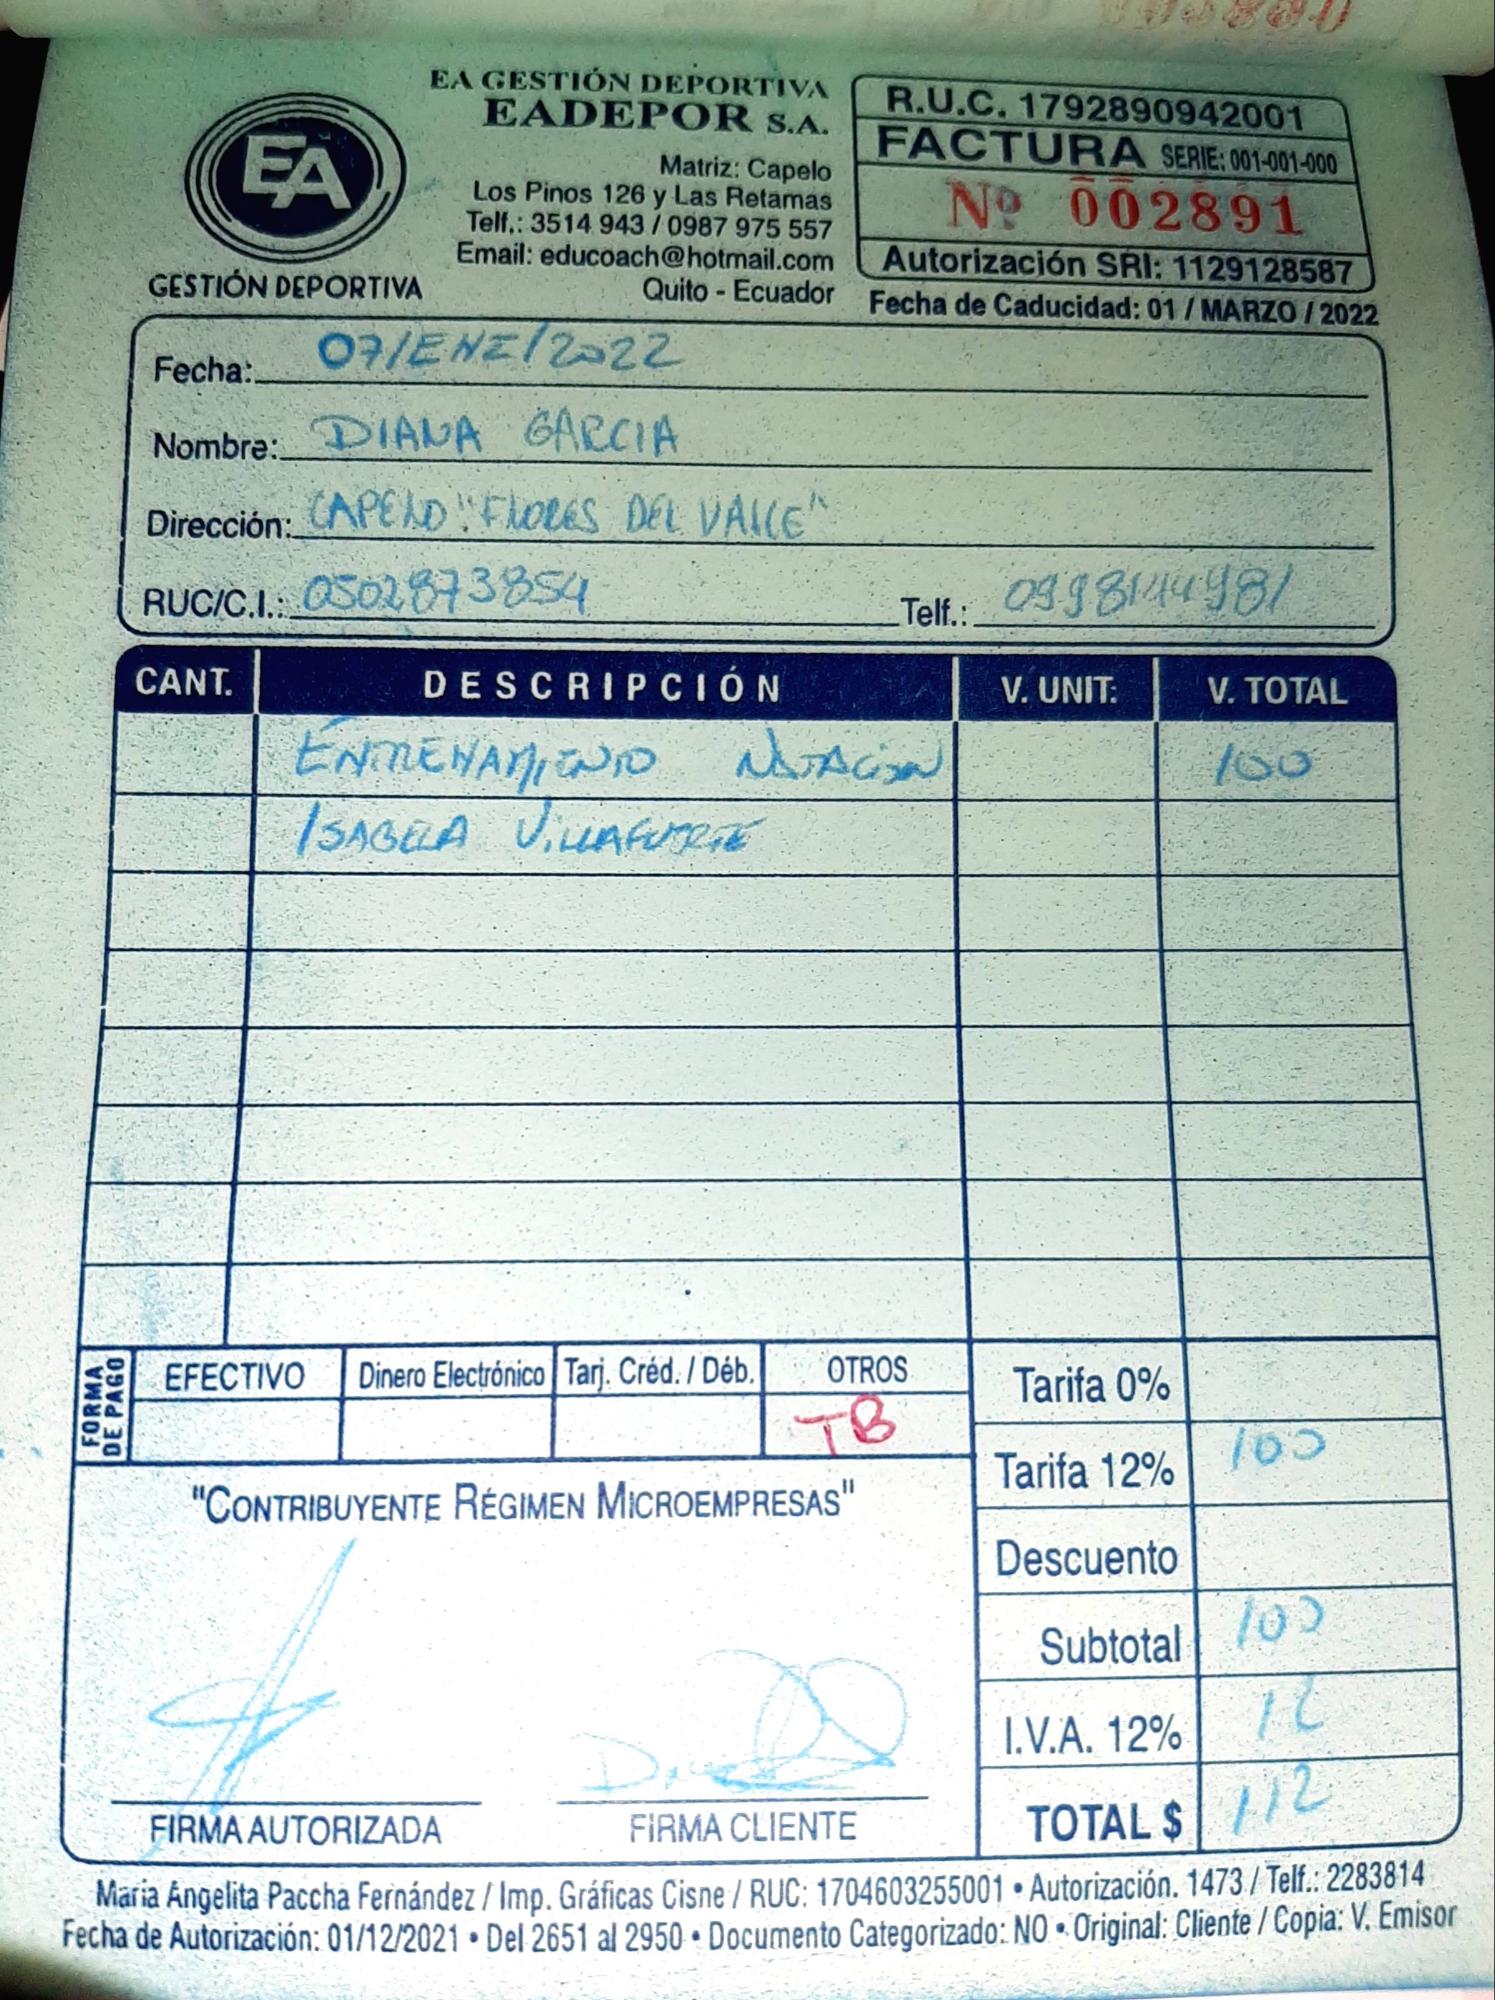 EA GESTIÓN DEPORTIVA
EADEPOR S.A.
EA
GESTIÓN DEPORTIVA
Matriz: Capelo
Los Pinos 126 y Las Retamas
Telf.: 3514 943 / 0987 975 557
Email: educoach@hotmail.com
Quito - Ecuador
R.U.C. 1792890942001
FACTURA SERIE: 001-001-000
Nº 002891
Autorización SRI: 1129128587
Fecha de Caducidad: 01 / MARZO / 2022
Fecha: 07/ENE/2022
Nombre: DIANA GARCIA
Dirección: CAPELO "FLORES DEL VALLE"
RUC/C.I.: 0502873854 Telf.: 0998144981
CANT. DESCRIPCIÓN V. UNIT: V. TOTAL
ENTRENAMIENTO NATACION 100
ISABELA VILLAFUERTE
FORMA DE PAGO
EFECTIVO Dinero Electrónico Tarj. Créd. / Déb. OTROS
TB
Tarifa 0%
Tarifa 12% 100
Descuento
Subtotal 100
I.V.A. 12% 12
TOTAL $ 112
"CONTRIBUYENTE RÉGIMEN MICROEMPRESAS"
FIRMA AUTORIZADA FIRMA CLIENTE
Maria Angelita Paccha Fernández / Imp. Gráficas Cisne / RUC: 1704603255001 • Autorización. 1473 / Telf.: 2283814
Fecha de Autorización: 01/12/2021 • Del 2651 al 2950 • Documento Categorizado: NO • Original: Cliente / Copia: V. Emisor